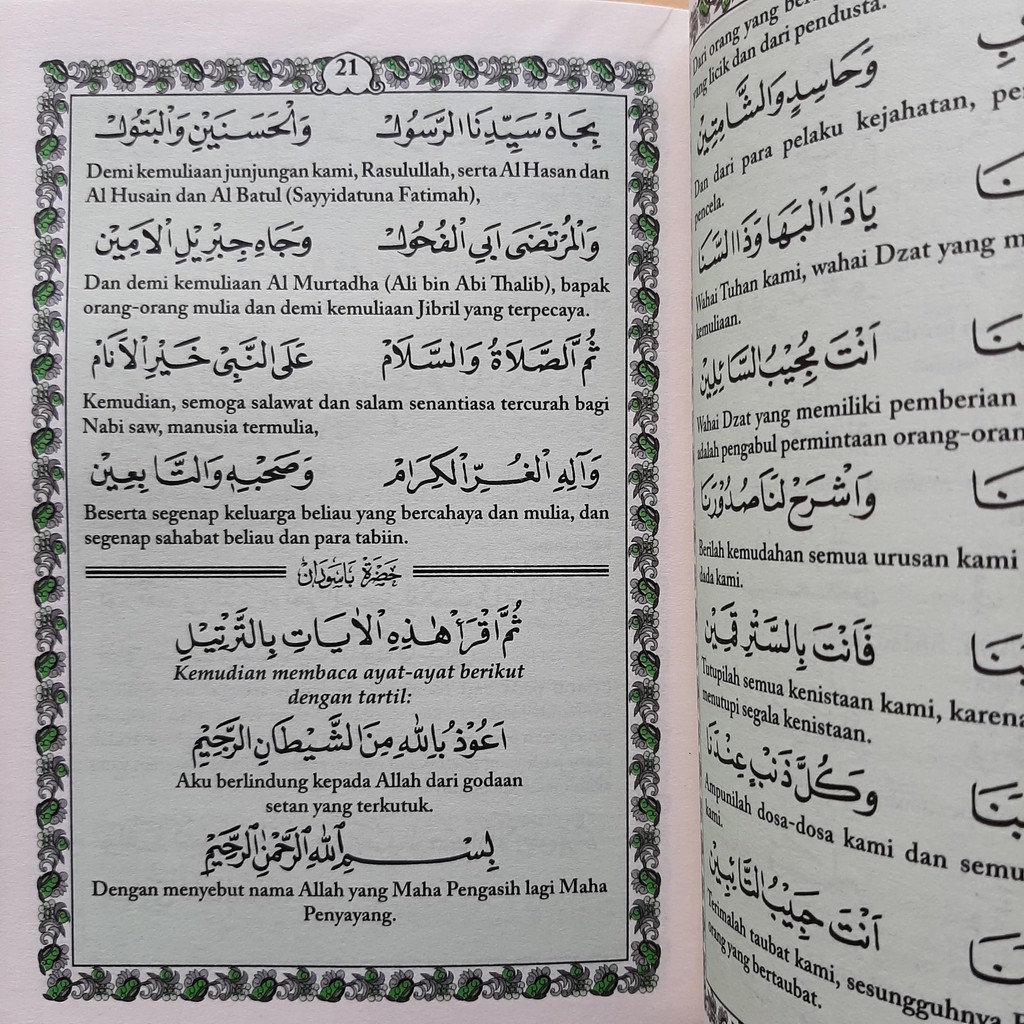 21
بِجَاهِ سَيِّدِنَا الرَّسُولْ وَالْحَسَنَيْنِ وَالْبَتُولْ
Demi kemuliaan junjungan kami, Rasulullah, serta Al Hasan dan
Al Husain dan Al Batul (Sayyidatuna Fatimah),
وَالْمُرْتَضَى اَبِي الْفُحُولْ وَجَاهِ جِبْرِيْلِ الْاَمِيْن
Dan demi kemuliaan Al Murtadha (Ali bin Abi Thalib), bapak
orang-orang mulia dan demi kemuliaan Jibril yang terpecaya.
ثُمَّ الصَّلَاةُ وَالسَّلَامْ عَلَى النَّبِيْ خَيْرِ الْاَنَامْ
Kemudian, semoga salawat dan salam senantiasa tercurah bagi
Nabi saw, manusia termulia,
وَآلِهِ الْغُرِّ الْكِرَامْ وَصَحْبِهِ وَالتَّابِعِيْن
Beserta segenap keluarga beliau yang bercahaya dan mulia, dan
segenap sahabat beliau dan para tabiin.
حَضْرَة بَاسَوْدَان
ثُمَّ اقْرَأْ هٰذِهِ الْاٰيَاتِ بِالتَّرْتِيْلِ
Kemudian membaca ayat-ayat berikut
dengan tartil:
اَعُوْذُ بِاللّٰهِ مِنَ الشَّيْطَانِ الرَّجِيْمِ
Aku berlindung kepada Allah dari godaan
setan yang terkutuk.
بِسْمِ اللّٰهِ الرَّحْمٰنِ الرَّحِيْمِ
Dengan menyebut nama Allah yang Maha Pengasih lagi Maha
Penyayang.
Dari orang yang
yang licik dan dari pendusta.
وَحَاسِدٍ وَالشَّامِتِيْن
Dan dari para pelaku kejahatan,
pencela.
يَاذَا الْبَهَا وَذَا السَّنَا
Wahai Tuhan kami, wahai Dzat yang
kemuliaan.
اَنْتَ مُجِيْبُ السَّائِلِيْن
Wahai Dzat yang memiliki pemberian
adalah pengabul permintaan
وَاشْرَحْ لَنَا صُدُوْرَنَا
Berilah kemudahan semua urusan kami
dada kami.
فَاَنْتَ بِالسَّتْرِ قَمِيْن
Tutupilah semua kenistaan kami, karena
menutupi segala kenistaan.
وَكُلَّ ذَنْبٍ عِنْدَنَا
Ampunilah dosa-dosa kami dan
kami.
اَنْتَ حَبِيْبُ التَّائِبِيْن
Terimalah taubat kami, sesungguhnya
orang yang bertaubat.